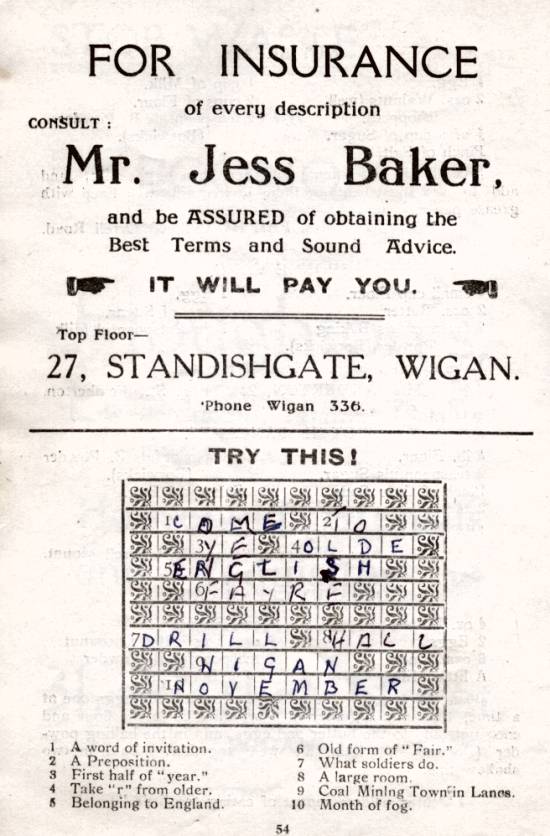 FOR INSURANCE
of every description
CONSULT :
Mr. Jess Baker,
and be ASSURED of obtaining the
Best Terms and Sound Advice.
IT WILL PAY YOU.
Top Floor—
27, STANDISHGATE, WIGAN.
'Phone Wigan 336.
TRY THIS!
1C O M E 2T O
3Y E 4O L D E
5E N G L I S H
6F A Y R E
7D R I L L 8H A L L
9W I G A N
1N O V E M B E R
1 A word of invitation.
2 A Preposition.
3 First half of "year."
4 Take "r" from older.
5 Belonging to England.
6 Old form of "Fair."
7 What soldiers do.
8 A large room.
9 Coal Mining Town in Lancs.
10 Month of fog.
54